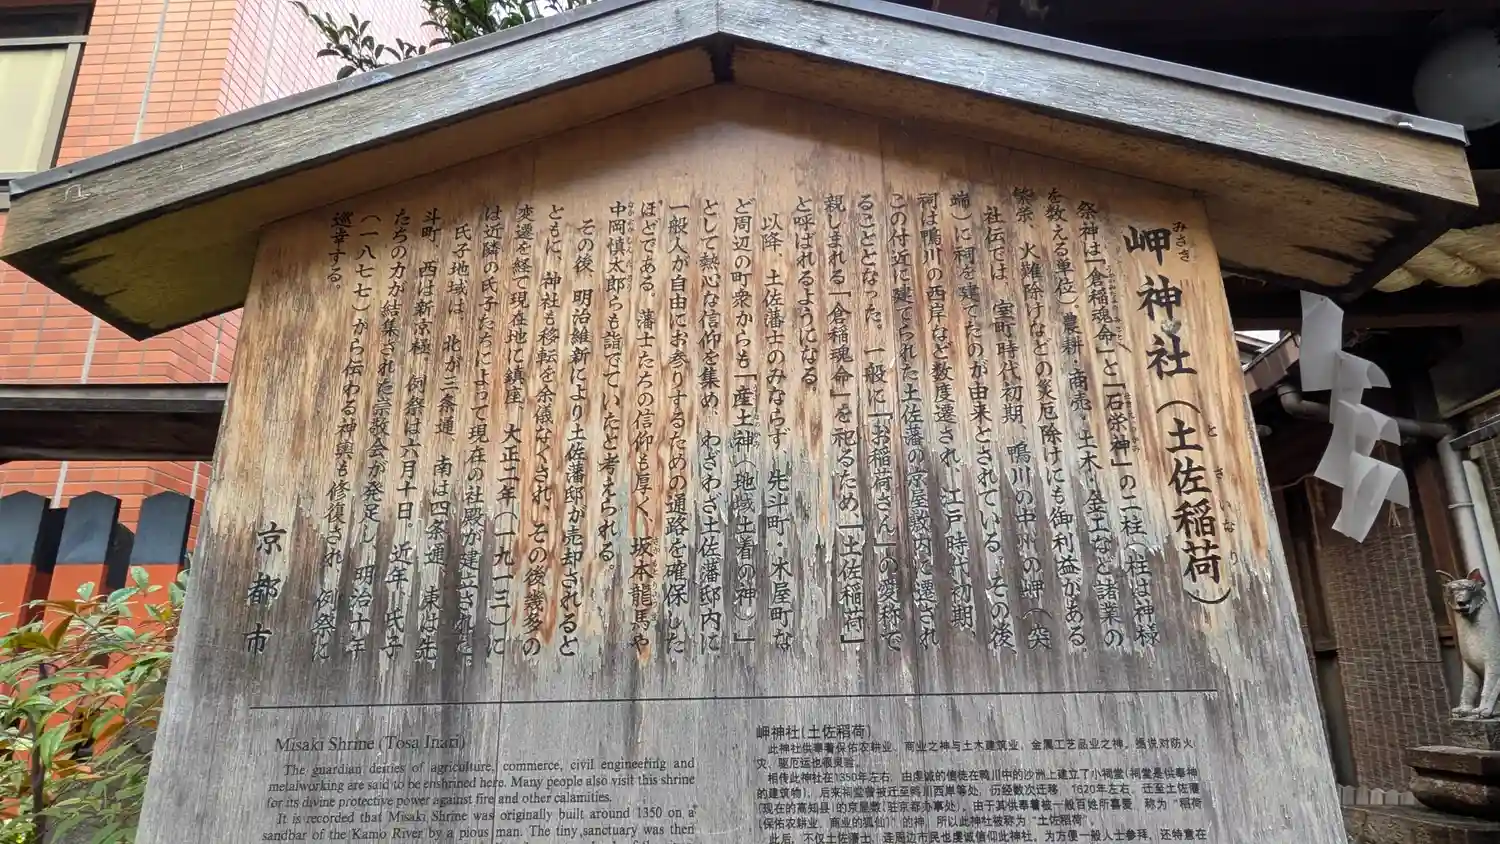 岬神社（土佐稲荷）
みさき
とさいなり
祭神は「倉稲魂命」と「石栄神」の二柱（柱は神様
を数える単位）農耕・商売・土木・金工など諸業の
繁栄、火難除けなどの災厄除けにも御利益がある。
社伝では、室町時代初期、鴨川の中州の岬（突
端）に祠を建てたのが由来とされている。その後
祠は鴨川の西岸など数度遷され、江戸時代初期、
この付近に建てられた土佐藩の京屋敷内に遷され
ることとなった。一般に「お稲荷さん」の愛称で
親しまれる「倉稲魂命」を祀るため、「土佐稲荷」
と呼ばれるようになる。
以降、土佐藩士のみならず、先斗町・木屋町な
ど周辺の町衆からも「産土神（地域土着の神）」
として熱心な信仰を集め、わざわざ土佐藩邸内に
一般人が自由にお参りするための通路を確保した
ほどである。藩士たちの信仰も厚く、坂本龍馬や
中岡慎太郎らも詣でていたと考えられる。
その後、明治維新により土佐藩邸が売却されると
ともに、神社も移転を余儀なくされ、その後幾多の
変遷を経て現在地に鎮座、大正二年（一九一三）に
は近隣の氏子たちによって現在の社殿が建立された。
氏子地域は、北が三条通、南は四条通、東は先
斗町、西は新京極。例祭は六月十日。近年、氏子
たちの力が結集された崇敬会が発足し、明治十年
（一八七七）から伝わる神輿も修復され、例祭に
巡幸する。
京都市
Misaki Shrine (Tosa Inari)
The guardian deities of agriculture, commerce, civil engineering and
metalworking are said to be enshrined here. Many people also visit this shrine
for its divine protective power against fire and other calamities.
It is recorded that Misaki Shrine was originally built around 1350 on a
sandbar of the Kamo River by a pious man. The tiny sanctuary was then
岬神社（土佐稻荷）
此神社供奉着保佑农耕业、商业之神与土木建筑业、金属工艺品业之神。据说对防火
灾、驱厄运也很灵验。
相传此神社在1350年左右，由虔诚的信徒在鸭川中的沙洲上建立了小祠堂（祠堂是供奉神
的建筑物）。后来祠堂曾被迁至鸭川西岸等处，历经数次迁移，1620年左右，迁至土佐藩
（现在的高知县）的京屋敷（驻京都办事处）。由于其供奉着被一般百姓所喜爱，称为"稻荷
（保佑农耕业、商业的狐仙）"的神，所以此神社被称为"土佐稻荷"。
此后，不仅土佐藩士，连周边市民也虔诚信仰此神社。为方便一般人士参拜，还特意在